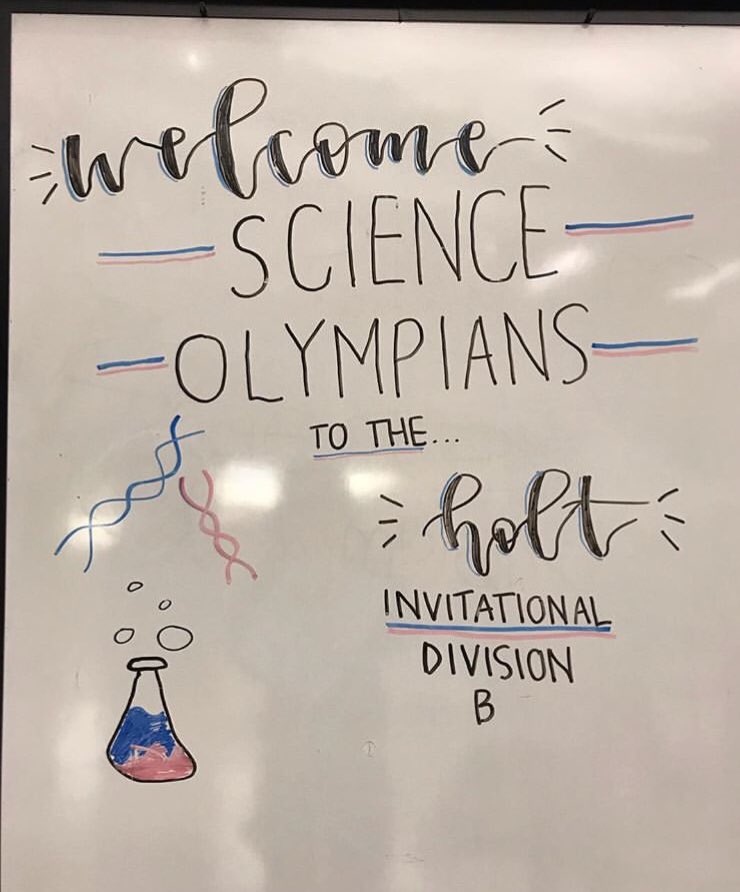 welcome
SCIENCE
OLYMPIANS
TO THE...
holt
INVITATIONAL
DIVISION
B